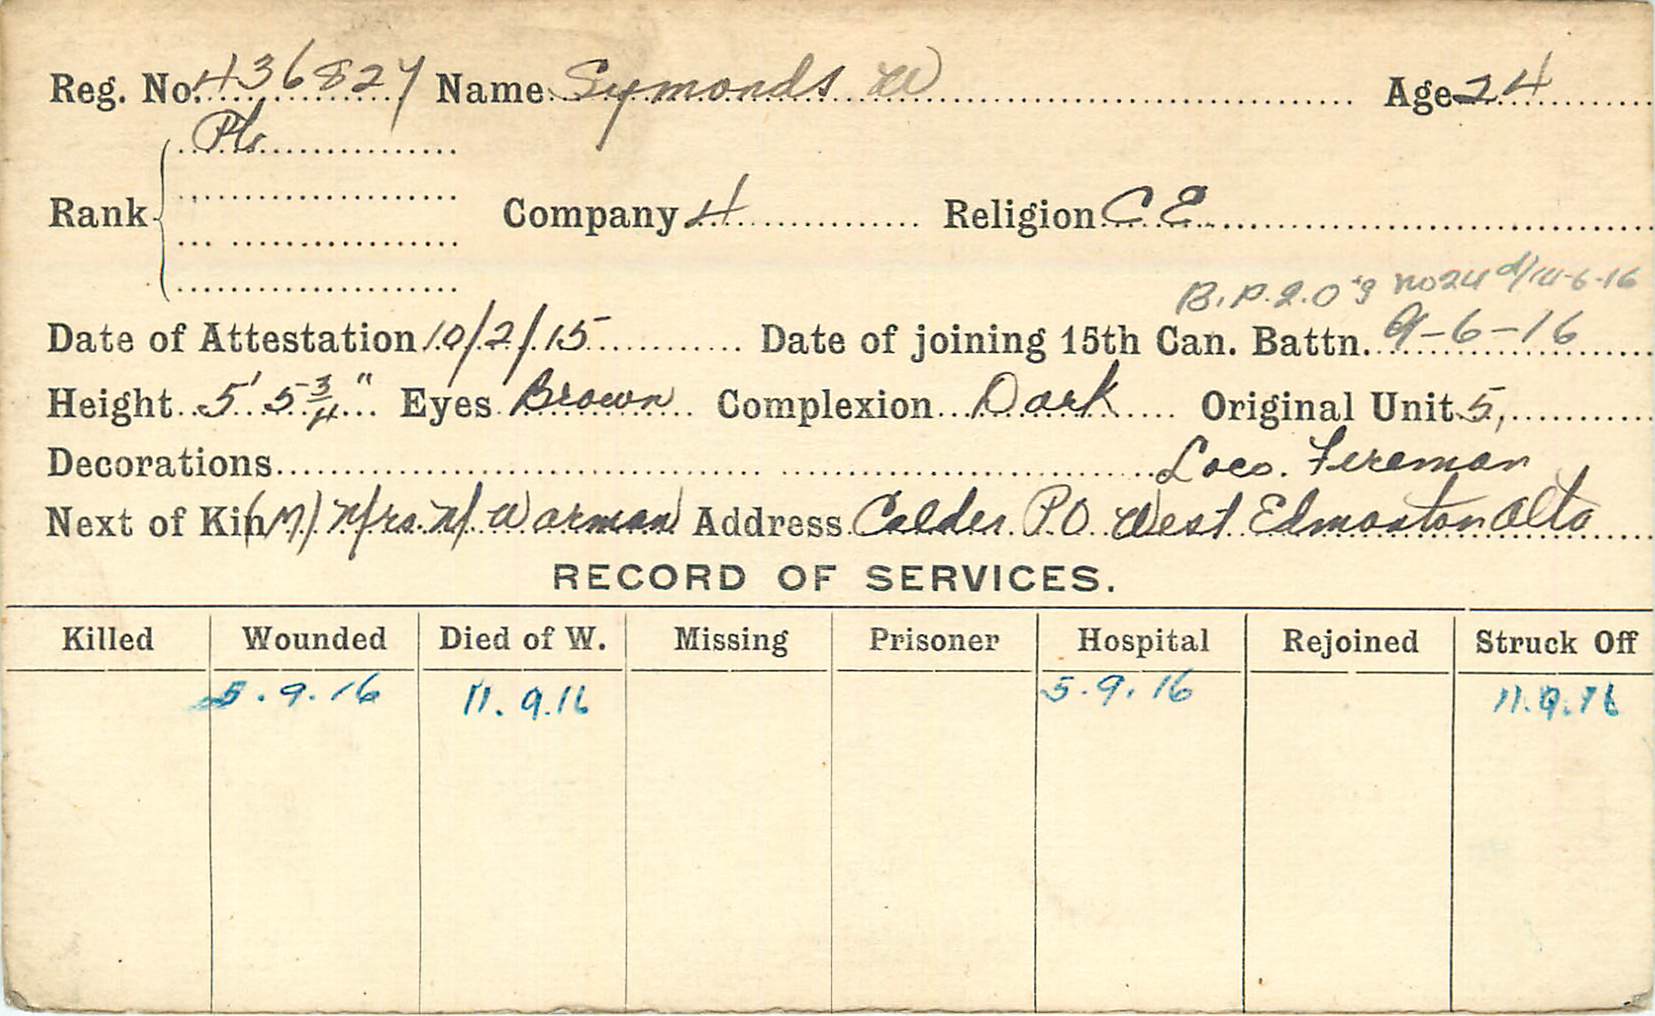 Reg. No. 436827 Name Symonds W Age 24
Pte
Rank Company 4 Religion C.E.
B.P.2.O's no24 d/14-6-16
Date of Attestation 10/2/15 Date of joining 15th Can. Battn. 9-6-16
Height 5' 5 3/4" Eyes Brown Complexion Dark Original Unit 5,
Decorations Loco. Fireman
Next of Kin (M) Mrs. M Warman Address Calder P.O. West Edmonton Alta
RECORD OF SERVICES.
Killed Wounded Died of W. Missing Prisoner Hospital Rejoined Struck Off
5.9.16 11.9.16 5.9.16 11.9.16